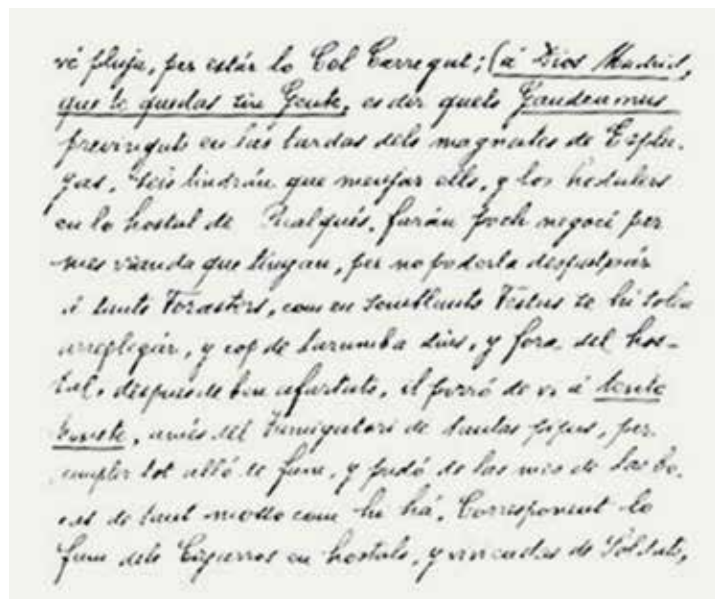 vé pluja, per estár lo Cel Carregat; (á Dios Madrid,
que te quedas sin Gente, es dir quels Gaudeamus
previnguts en las tardas dels magnates de Esplu-
gas, se'is tindrán que menjar ells, y los hostalers
en lo hostal de Rialqués, farán poch negoci per
mes vianda que tingan, per no poderla despatxár
á tants Forasters, com en semblants Festas se hi solen
arreplegár, y cop de tarumba dins, y fora del hos-
tal, despues de ben afartats, el porró de vi á tente
bonete, amés del fumigatori de tantas pipas, per
cumplir tot alló de fum, y pudó de las mes de las bo-
cas de tant mosso com hi há. Corresponent lo
fum dels Cigarros en hostals, y viviendas de Soldats,